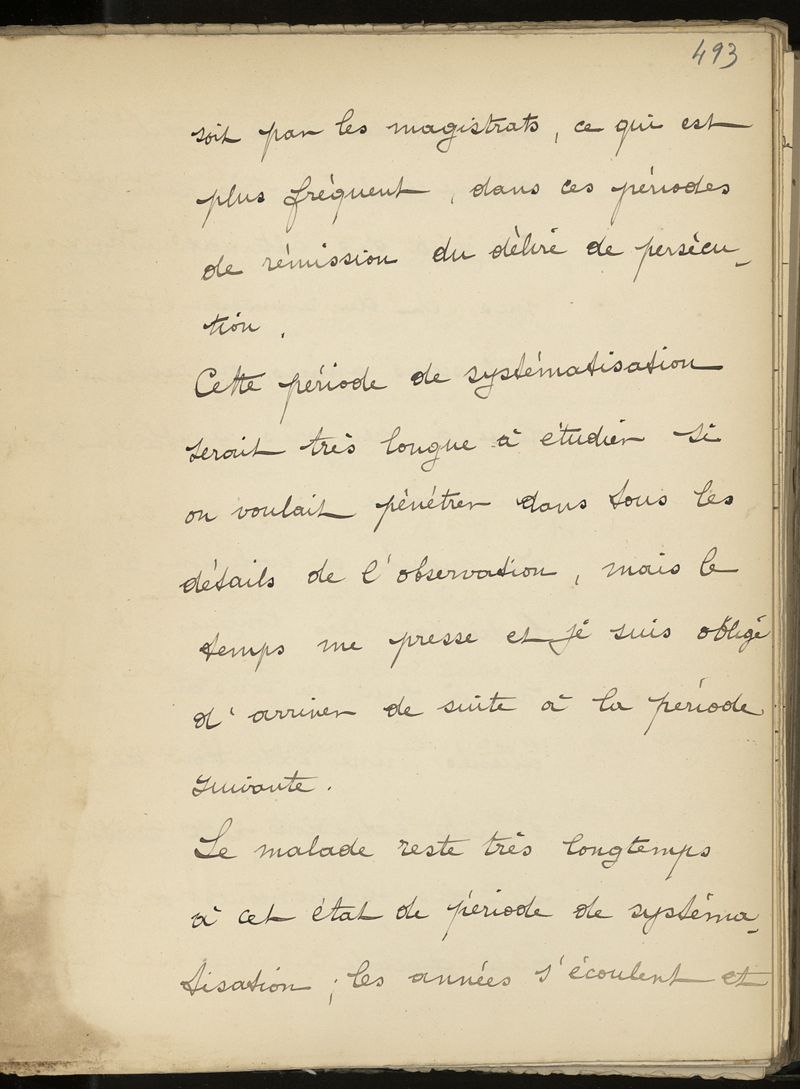 493
soit par les magistrats, ce qui est
plus fréquent, dans ces périodes
de rémission du délire de persécu-
tion.
Cette période de systématisation
serait très longue à étudier si
on voulait pénétrer dans tous les
détails de l'observation, mais le
temps me presse et je suis obligé
d'arriver de suite à la période
suivante.
Le malade reste très longtemps
à cet état de période de systéma-
tisation; les années s'écoulent et